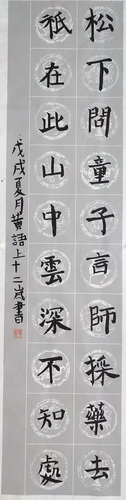 松下問童子言師採藥去
祇在此山中雲深不知處
戊戌夏月黄語上十二歲書